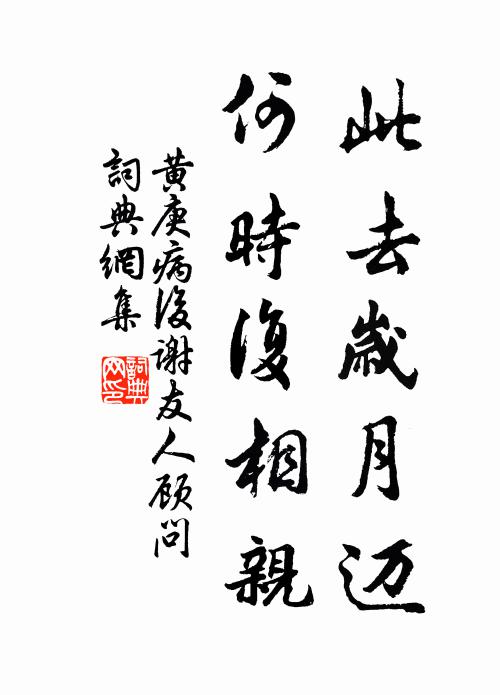 此去歲月迈
何時復相親
黄庚病後谢友人顾問
詞典網集
詞典網印